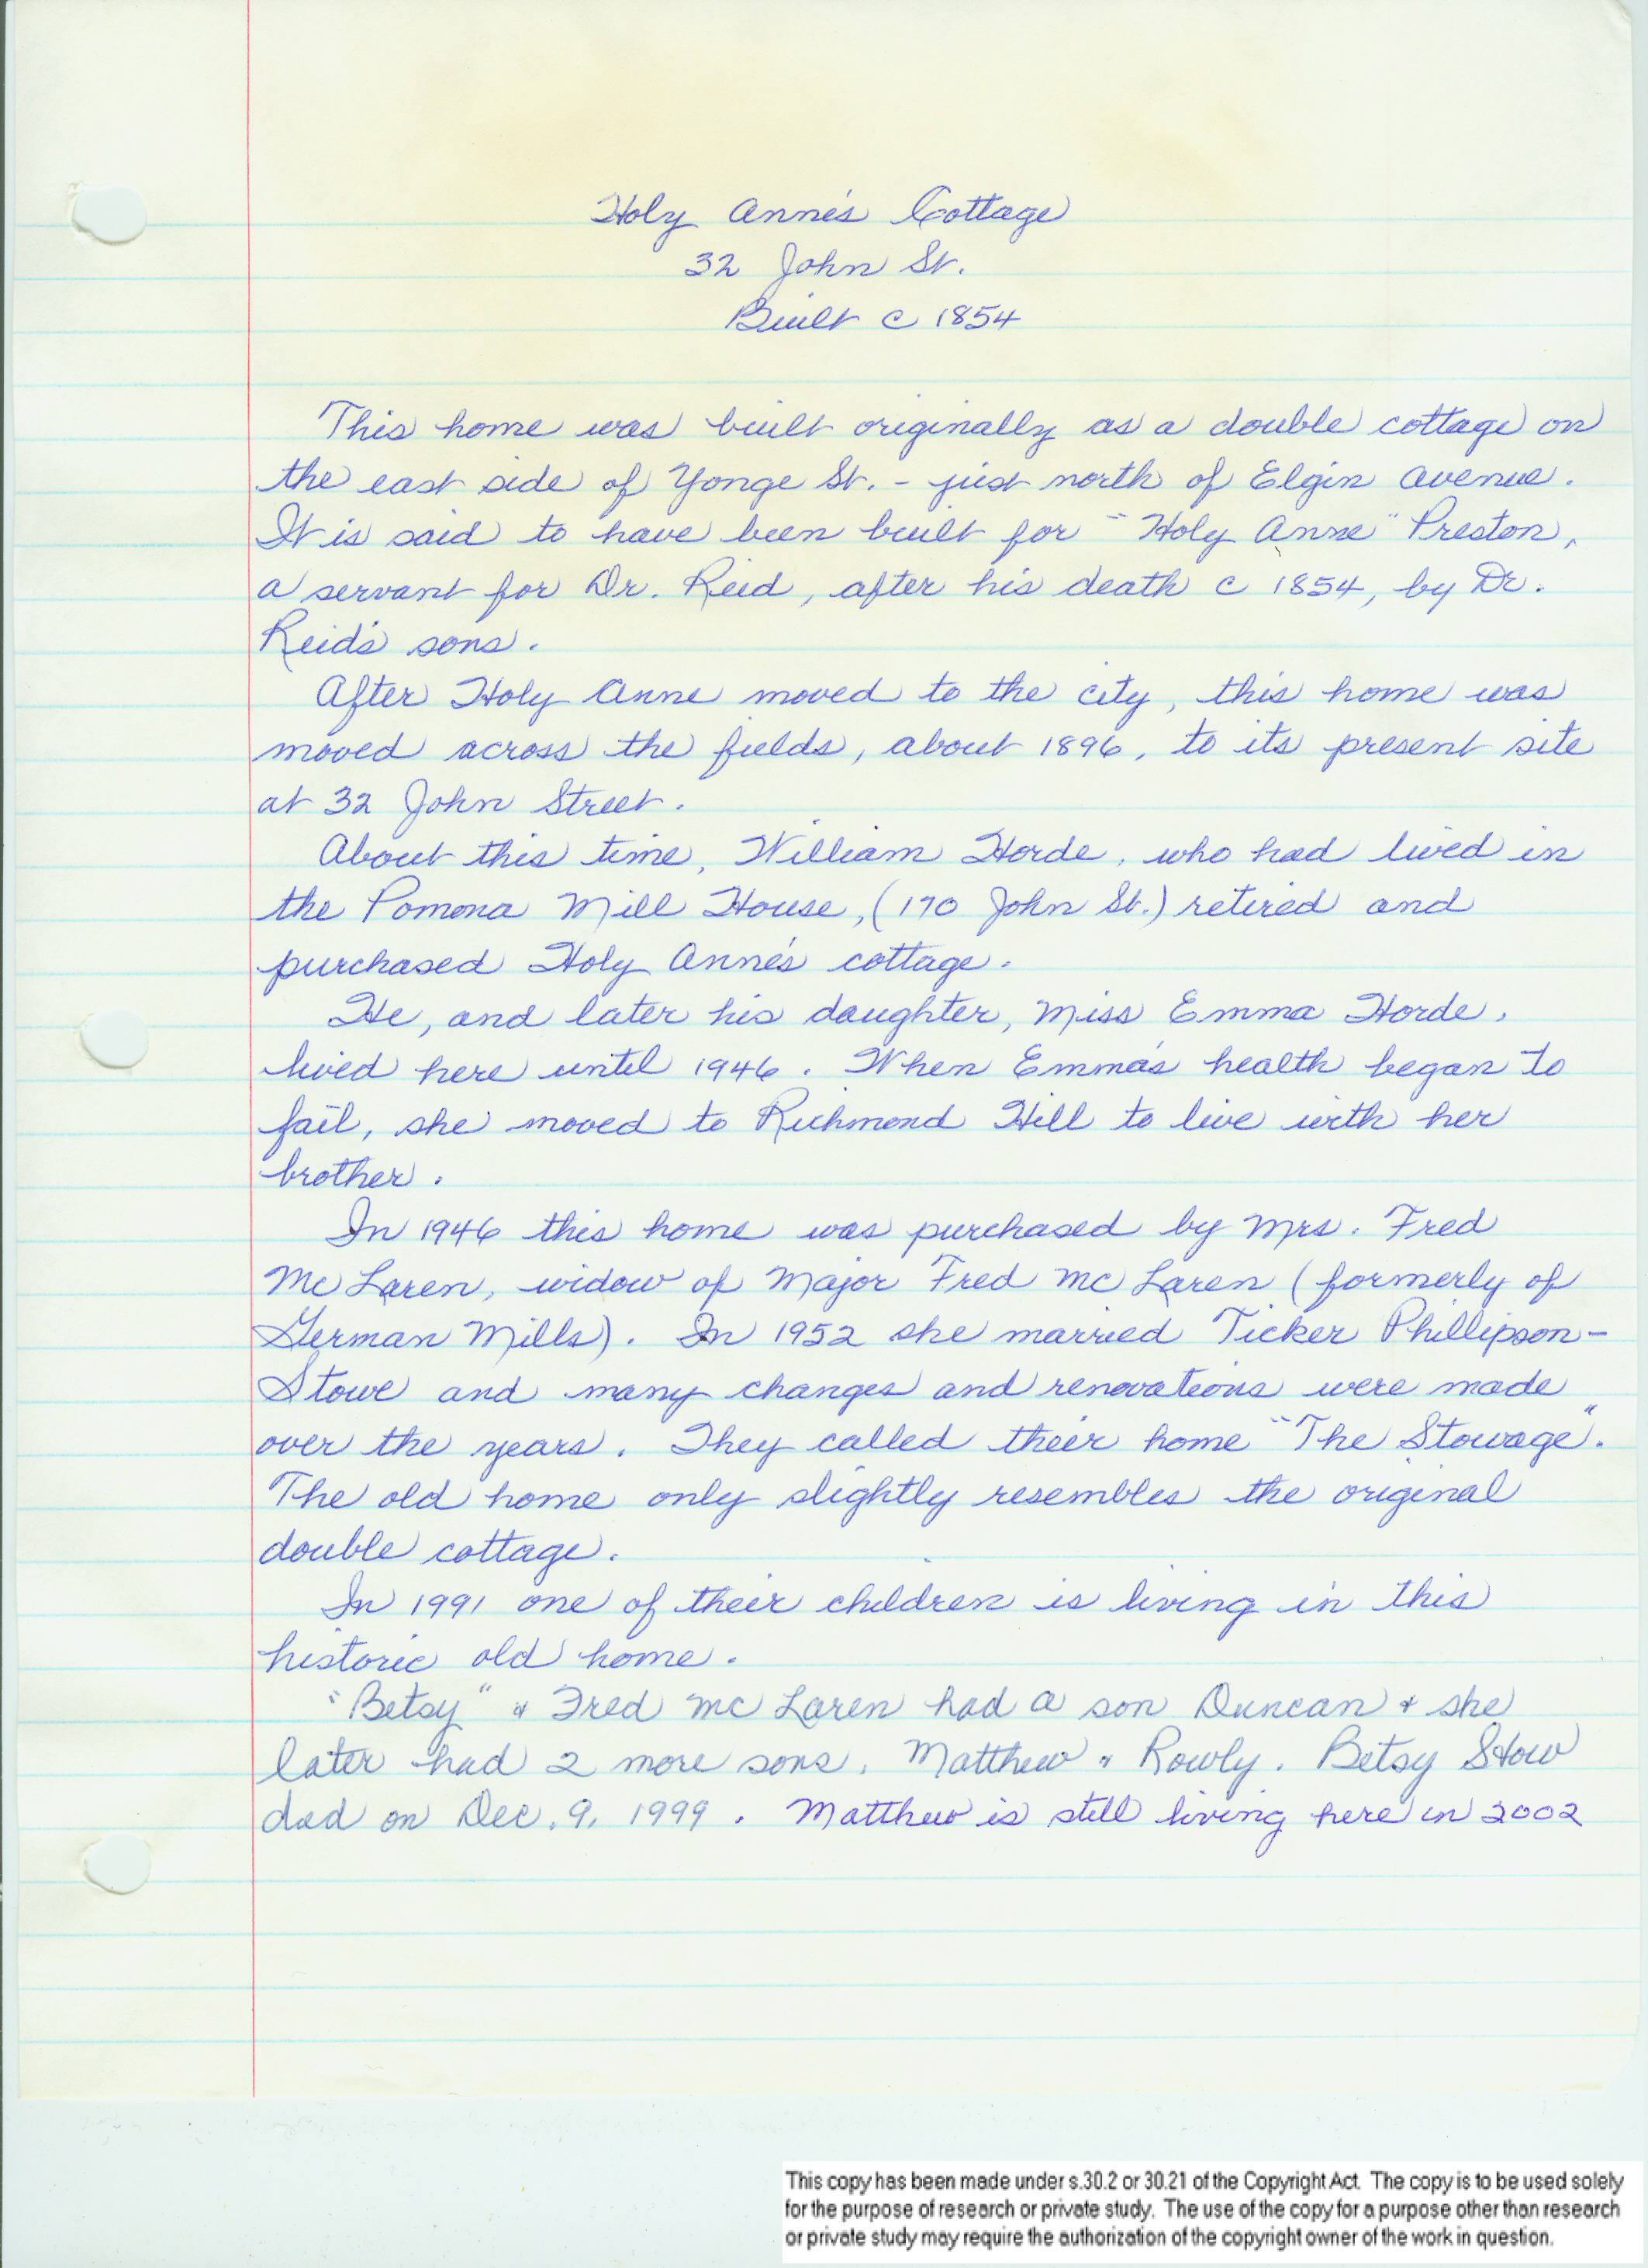 Holy Anne's Cottage
32 John St.
Built c 1854
This home was built originally as a double cottage on
the east side of Yonge St. - just north of Elgin Avenue.
It is said to have been built for "Holy Anne" Preston,
a servant for Dr. Reid, after his death c 1854, by Dr.
Reid's sons.
After Holy Anne moved to the city, this home was
moved across the fields, about 1896, to its present site
at 32 John Street.
About this time, William Horde, who had lived in
the Pomona Mill House, (170 John St.) retired and
purchased Holy Anne's cottage.
He, and later his daughter, Miss Emma Horde,
lived here until 1946. When Emma's health began to
fail, she moved to Richmond Hill to live with her
brother.
In 1946 this home was purchased by Mrs. Fred
Mc Laren, widow of Major Fred Mc Laren (formerly of
German Mills). In 1952 she married Ticker Phillipson-
Stowe and many changes and renovations were made
over the years. They called their home "The Stowage".
The old home only slightly resembles the original
double cottage.
In 1991 one of their children is living in this
historic old home.
"Betsy" & Fred Mc Laren had a son Duncan & she
later had 2 more sons, Matthew & Rowly. Betsy Stow
died on Dec. 9, 1999. Matthew is still living here in 2002
This copy has been made under s.30.2 or 30.21 of the Copyright Act. The copy is to be used solely
for the purpose of research or private study. The use of the copy for a purpose other than research
or private study may require the authorization of the copyright owner of the work in question.